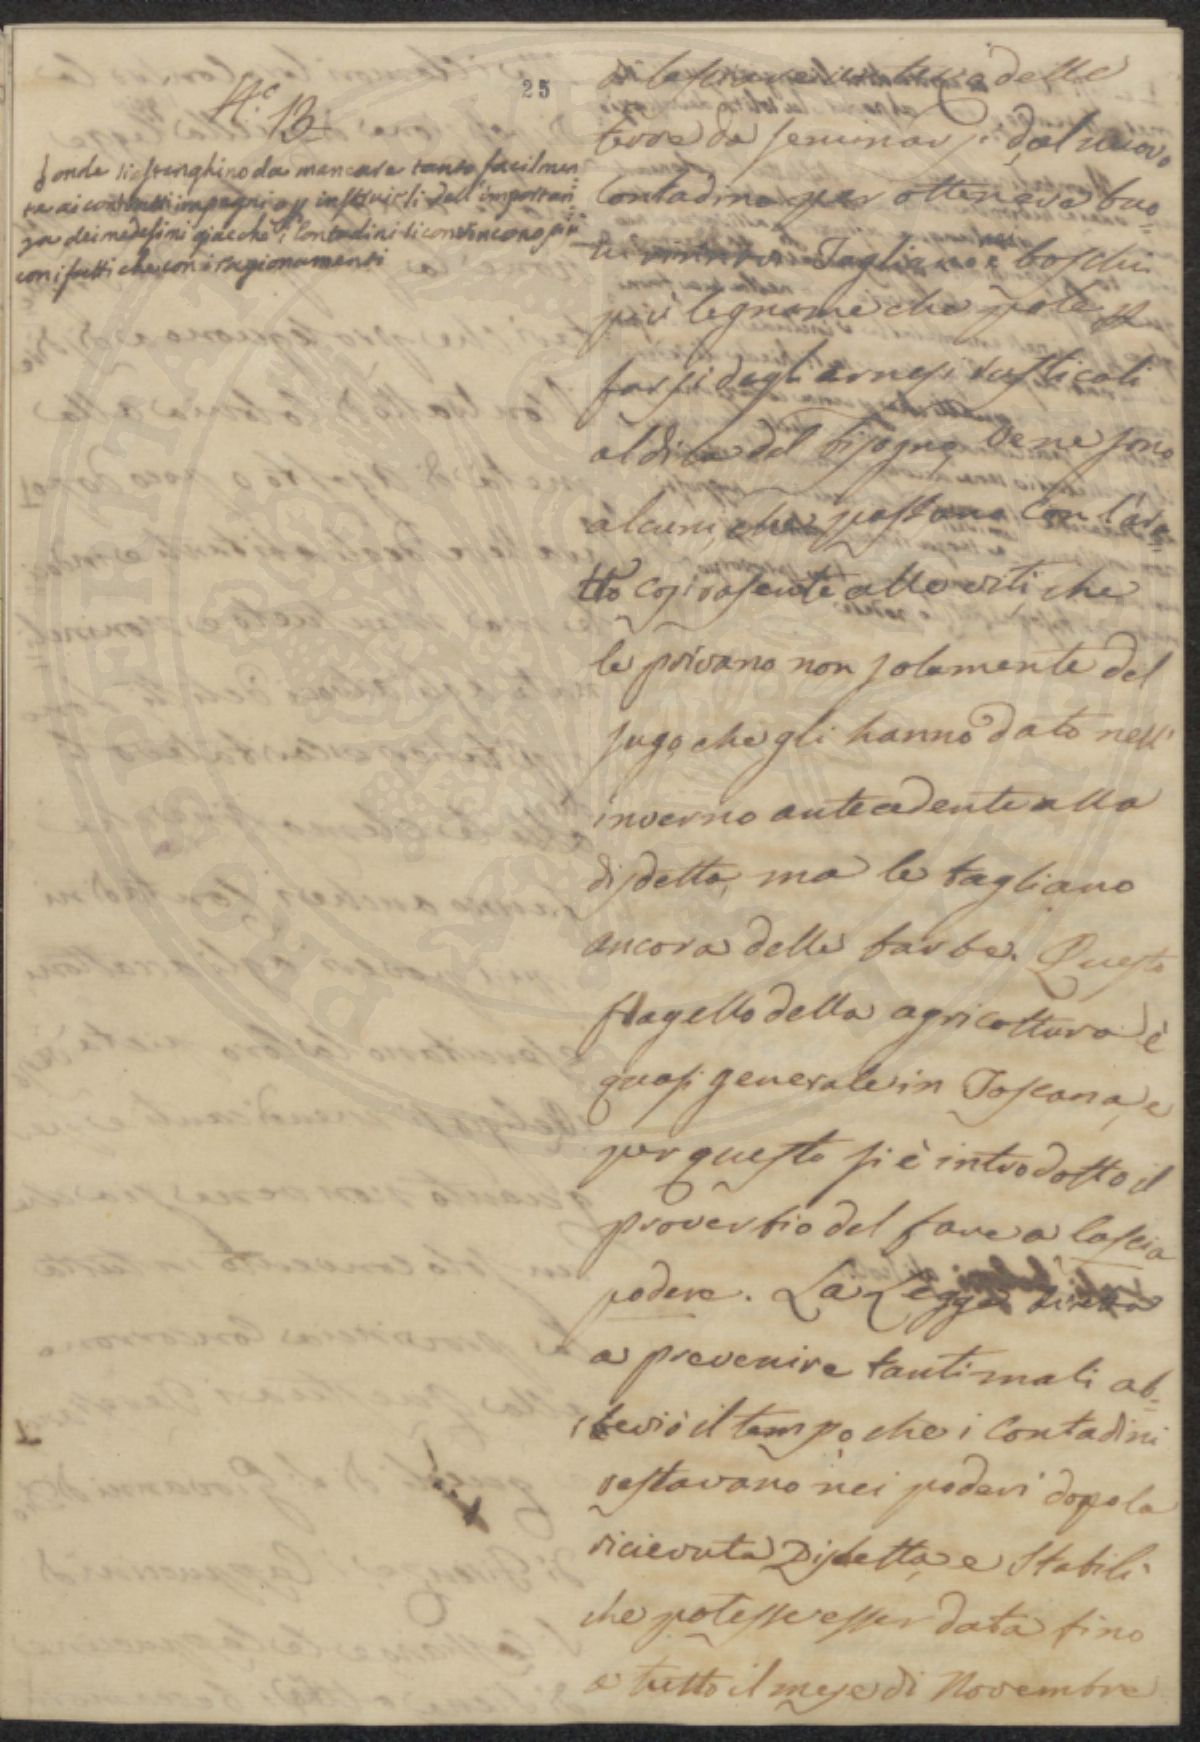 25
N.c 13
onde si astenghino da mancare tanto facilmen
te ai contratti impegni o p instruirli dell'importan
za dei medesimi giacche i Contadini si convincono più
con i fatti che con i ragionamenti
delle
terre da seminarsi dal nuovo
Contadino per ottenere buo
Tagliano i boschi
più legname che pole p
farsi degli arnesi rusticali
al di la del bisogno, Ve ne sono
alcuni, che passano con l'ara
tto cosi rasente alle viti che
le privano non solamente del
sugo, che gli hanno dato nell'
inverno antecedente alla
disdetta, ma le tagliano
ancora delle barbe. Questo
flagello della agricoltura è
quasi generale in Toscana, e
per questo si è introdotto il
proverbio del fare a lascia
podere. La Legge diretta
a prevenire tanti mali ab
breviò il tempo che i Contadini
restavano nei poderi dopo la
ricievuta Disdetta, e Stabilì
che potesse esser data fino
a tutto il mese di Novembre